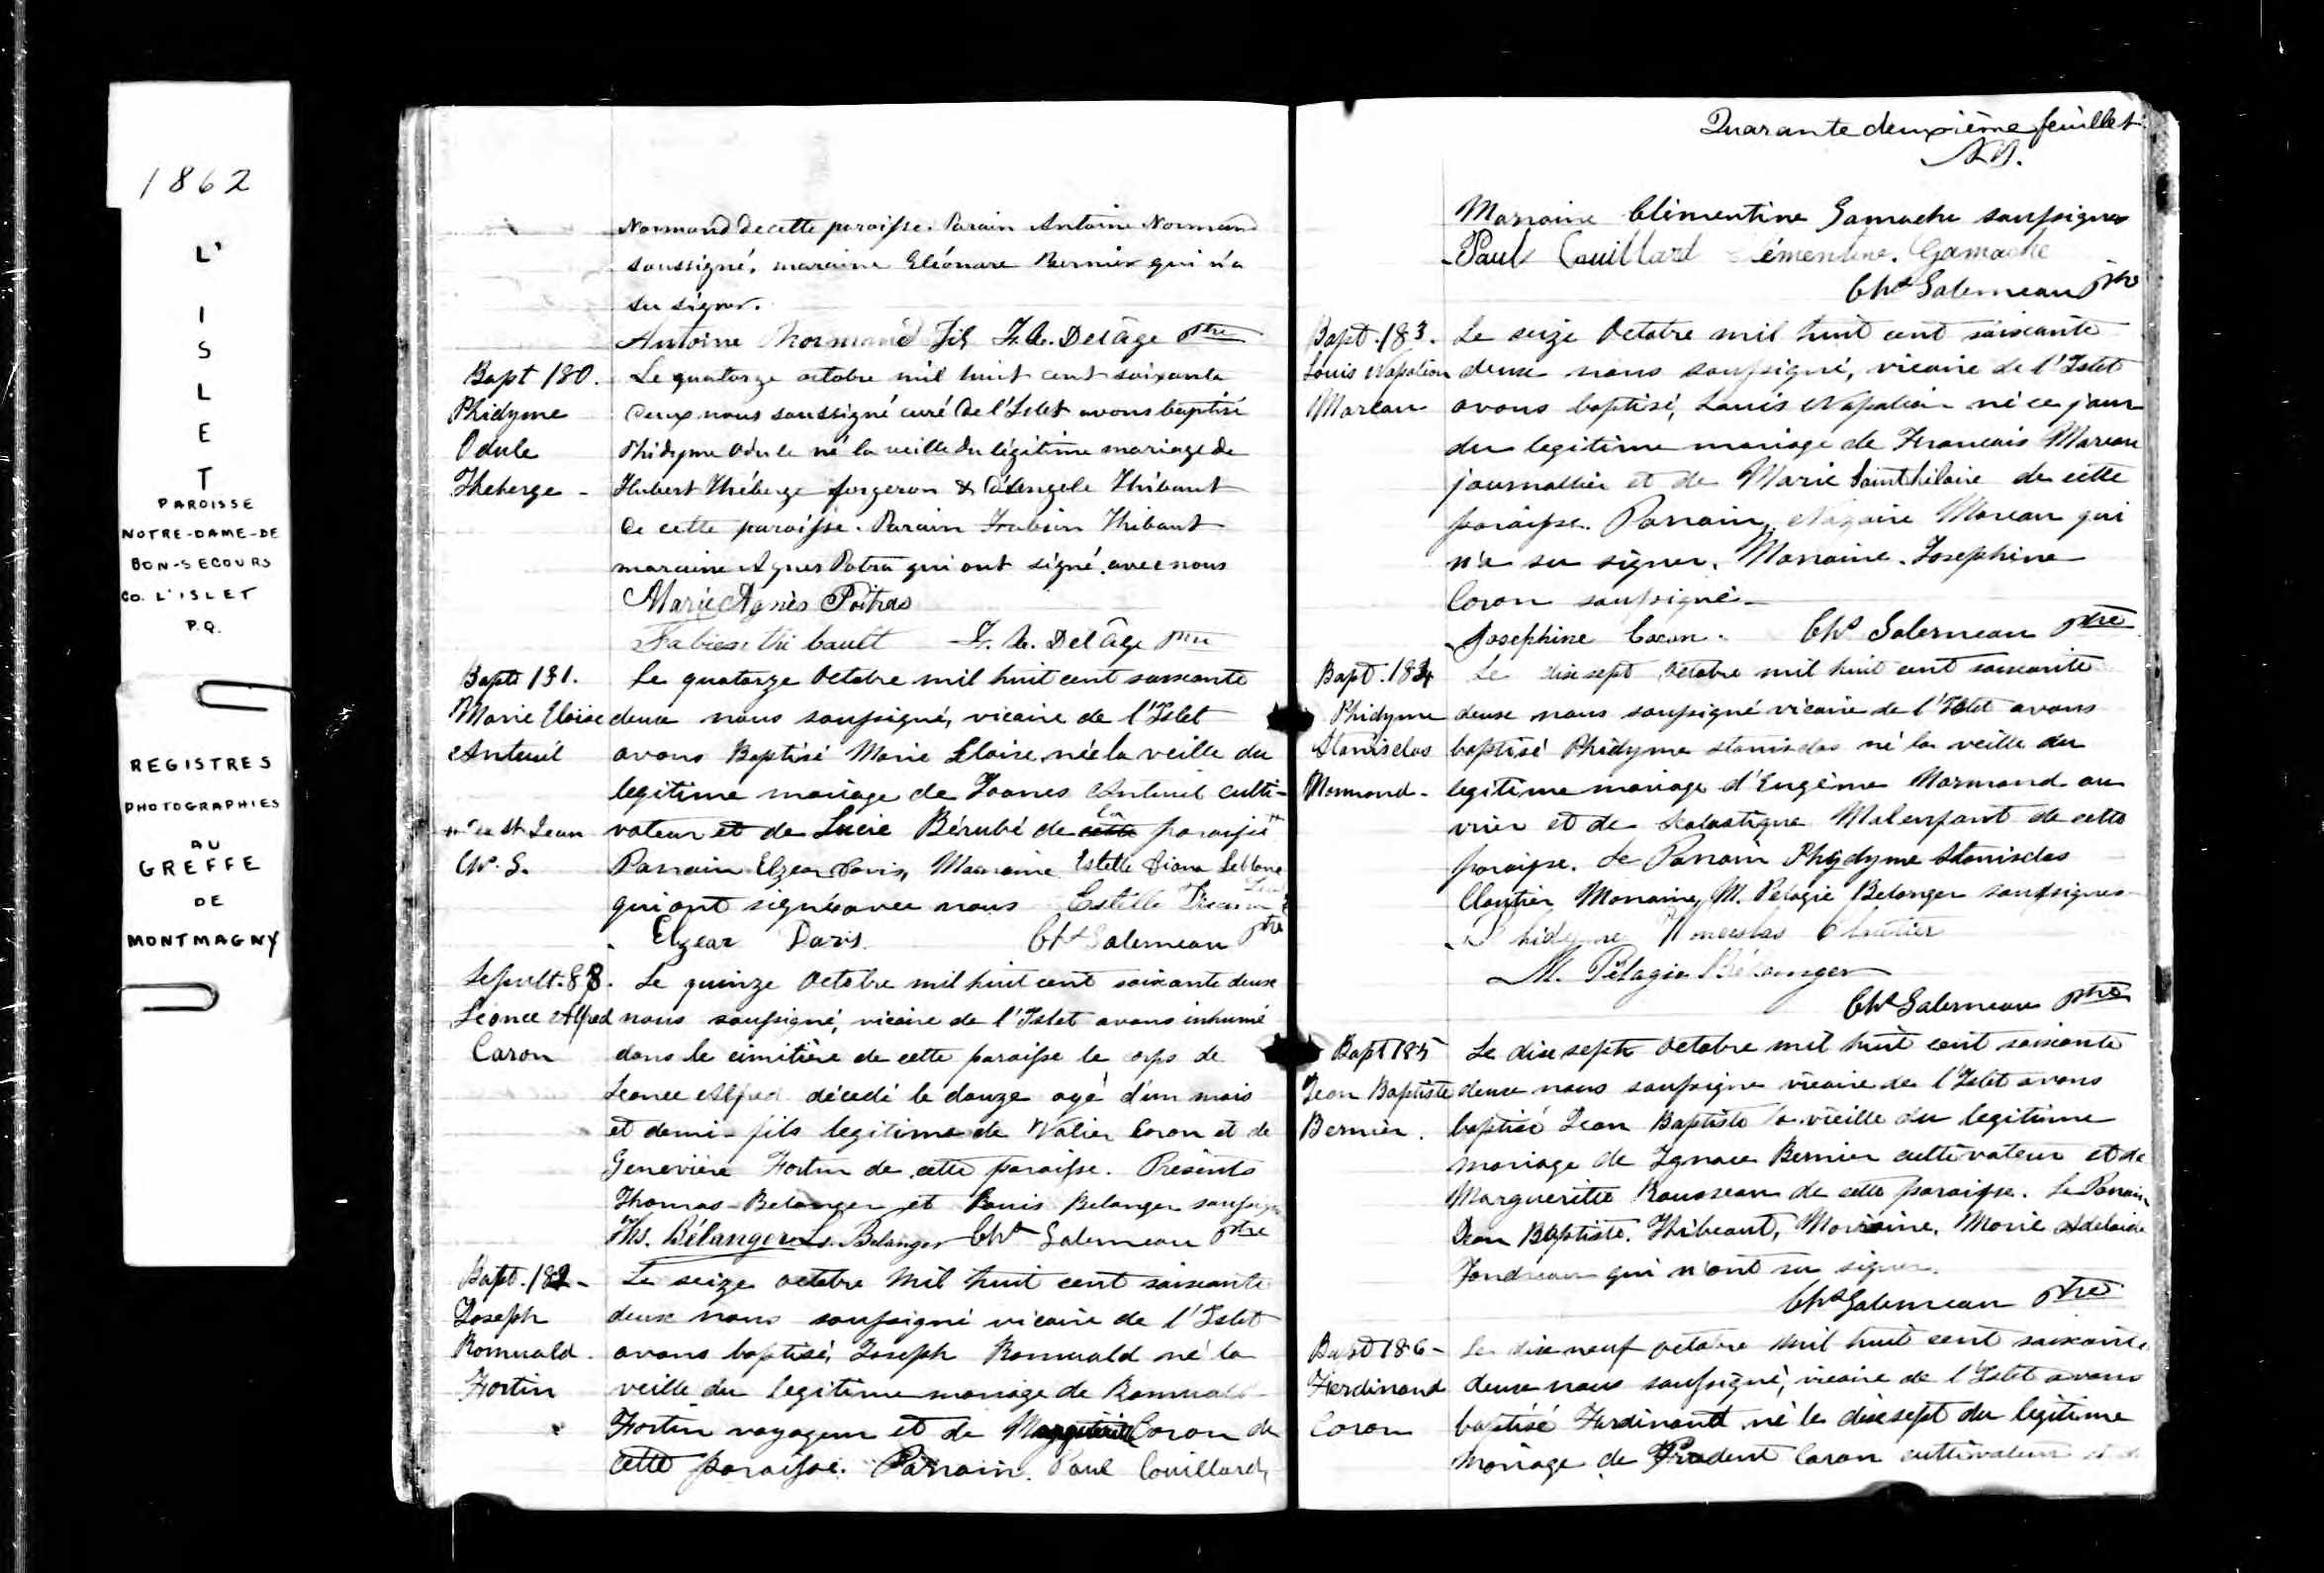 1862
L'
I
S
L
E
T
PAROISSE
NOTRE-DAME-DE
BON-SECOURS
CO. L'ISLET
P.Q.
REGISTRES
PHOTOGRAPHIES
AU
GREFFE
DE
MONTMAGNY
Normand de cette paroisse. Parain Antoine Normand
soussigné, maraine Eléonare Bernier qui n'a
su signer.
Antoine Normand fils F. X. Delâge Ptre
Bapt 180.
Phidyme
Odule
Theberge -
Le quatorze octobre mil huit cent soixante
deux nous soussigné curé de l'Islet avons baptisé
Phidyme Odule né la veille du légitime mariage de
Hubert Théberge forgeron & d'Angele Thibaut
de cette paroisse. Parain Fabien Thibaut
maraine Agnes Potra qui ont signé avec nous
Marie Agnès Poitras
Fabien thibault F. X. Delâge Ptre
Bapt 181.
Marie Eloise
Anteuil
de St Jean
Chs. G.
Le quatorze Octobre mil huit cent soixante
deux nous soussigné, vicaire de l'Islet
avons Baptisé Marie Eloise, née la veille du
legitime mariage de Anteuil culti-
vateur et de Lucie Bérubé de cette la paroisse
Parrain Elzear Paris, Marraine Estelle Diana Leblanc
qui ont signés avec nous Estelle Diana
Elzear Paris. Chs Galerneau Ptre
Sepult. 88.
Léonce Alfred
Caron
Le quinze Octobre mil huit cent soixante deux
nous soussigné, vicaire de l'Islet avons inhumé
dans le cimitière de cette paroisse le corps de
Leonce Alfred décedé le douze agé d'un mois
et demi fils legitime de Valier Caron et de
Genevieve Fortin de cette paroisse. Présents
Thomas Belanger et Louis Belanger
Ths. Bélanger Ls. Belanger Chs Galerneau Ptre
Bapt. 182-
Joseph
Romuald
Fortin
Le seize octobre mil huit cent soixante
deux nous soussigné vicaire de l'Islet
avons baptisé, Joseph Romuald né la
veille du legitime mariage de Romuald
Fortin voyageur et de Caron de
cette paroisse. Parrain. Paul Couillard,
Quarante deuxième feuillet
Marraine Clémentine Gamache soussignes
Paul Couillard Clémentine Gamache
Chs Galerneau Ptre
Bapt. 183.
Louis Napoléon
Moreau
Le seize Octobre mil huit cent soixante
deux nous soussigné, vicaire de l'Islet
avons baptisé, Louis Napoléon né ce jour
du legitime mariage de Francais Moreau
journallier et de Marie Saint hilaire de cette
paroisse. Parrain, Nazaire Moreau qui
n'a su signer. Marraine. Josephine
Coron soussigné-
Josephine Caron. Chs Galerneau Ptre
Bapt. 184
Phidyme
Stanisclas
Normand-
Le dix sept Octobre mil huit cent soixante
deux nous soussigné vicaire de l'Islet avons
baptisé Phidyme Stanisclas né la veille du
legitime mariage d'Eugène Normand ou
vrier et de Scolastique Malenfant de cette
paroisse. Le Parrain Phydyme Stanisclas
Cloutier Marraine, M. Pelagie Belanger soussignes
Phidyme Cloutier
M. Pélagie Bélanger
Chs Galerneau Ptre
Bapt 185
Jean Baptiste
Bernier.
Le dix sept Octobre mil huit cent soixante
deux nous soussigne vicaire de l'Islet avons
baptisé Jean Baptiste la vieille du legitime
mariage de Ignace Bernier cultivateur et de
Marguerite Rousseau de cette paroisse. Le Parrain
Jean Baptiste Thibeaut, Marraine, Marie Adelaide
qui n'ont su signer.
Chs Galerneau Ptre
Bapt 186-
Ferdinand
Coron
Le dix neuf octobre mil huit cent soixante
deux nous soussigné, vicaire de l'Islet avons
baptisé Ferdinand né le dix sept du legitime
mariage de Prudent Caron cultivateur et de